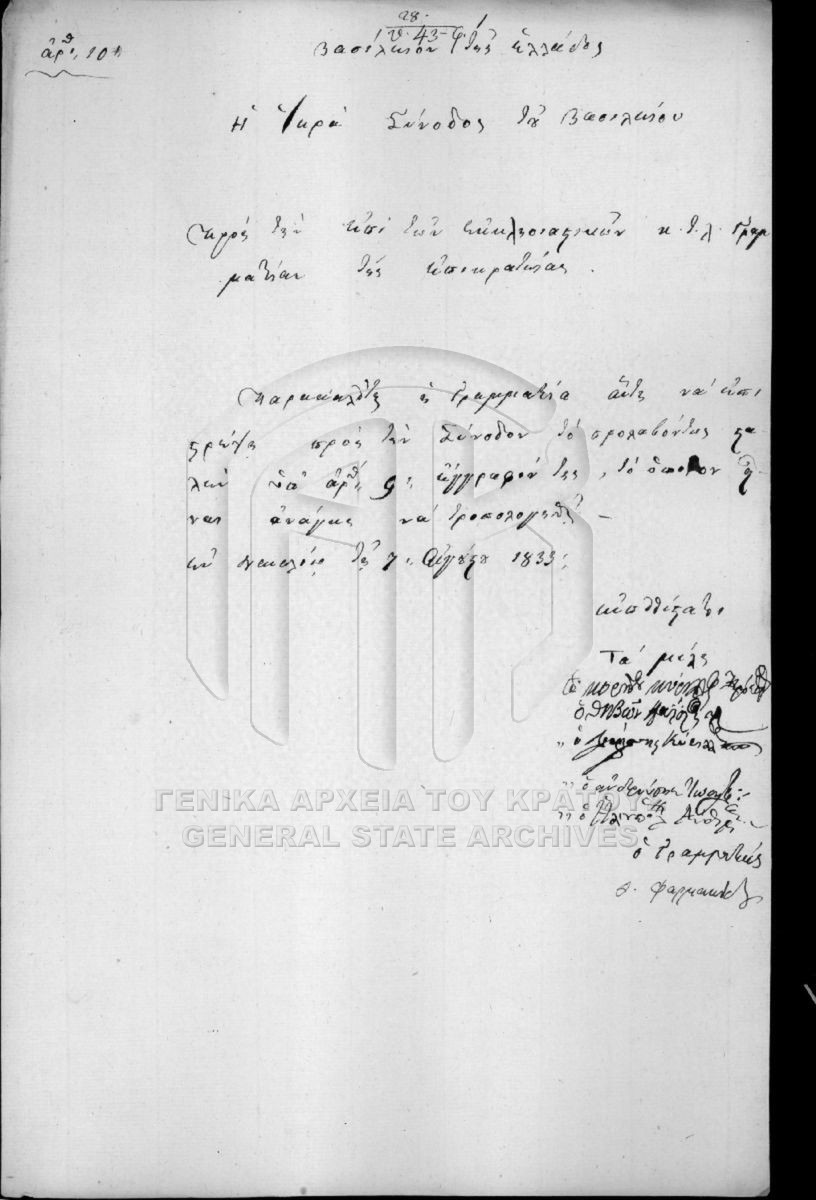 28.
ἀρθ. 10
Βασίλειον τῆς Ἑλλάδος
Ἡ Ἱερὰ Σύνοδος τοῦ Βασιλείου
Πρὸς τὴν ἐπὶ τῶν Ἐκκλησιαστικῶν κ.τ.λ. Γραμ
ματείαν τῆς ἐπικρατείας.
Παρακαλεῖται ἡ Γραμματεία αὕτη νὰ ἐπι
στρέψῃ πρὸς τὴν Σύνοδον τὸ προλαβόντως στα
λὲν ὑπ' ἀρθ. 9: ἔγγραφόν της, τὸ ὁποῖον εἶ
ναι ἀνάγκη νὰ τροπολογηθῇ –
ἐν Ναυπλίῳ τῇ 7: Αὐγούστου 1833:
εὐπειθέστατοι
Τὰ μέλη
ὁ Κορίνθου Κύριλλος
ὁ Θηβῶν Παΐσιος
ὁ Κύριλλος
ὁ Ἀνδρούσης Ἰωσήφ
ὁ
ὁ Γραμματεὺς
Θ. Φαρμακίδης
ΓΕΝΙΚΑ ΑΡΧΕΙΑ ΤΟΥ ΚΡΑΤΟΥΣ
GENERAL STATE ARCHIVES